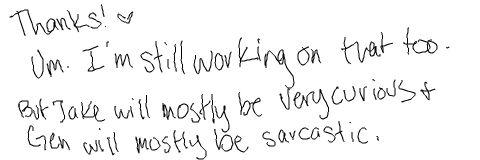 Thanks! ♡
Um. I'm still working on that too.
But Jake will mostly be very curious &
Gen will mostly be sarcastic.